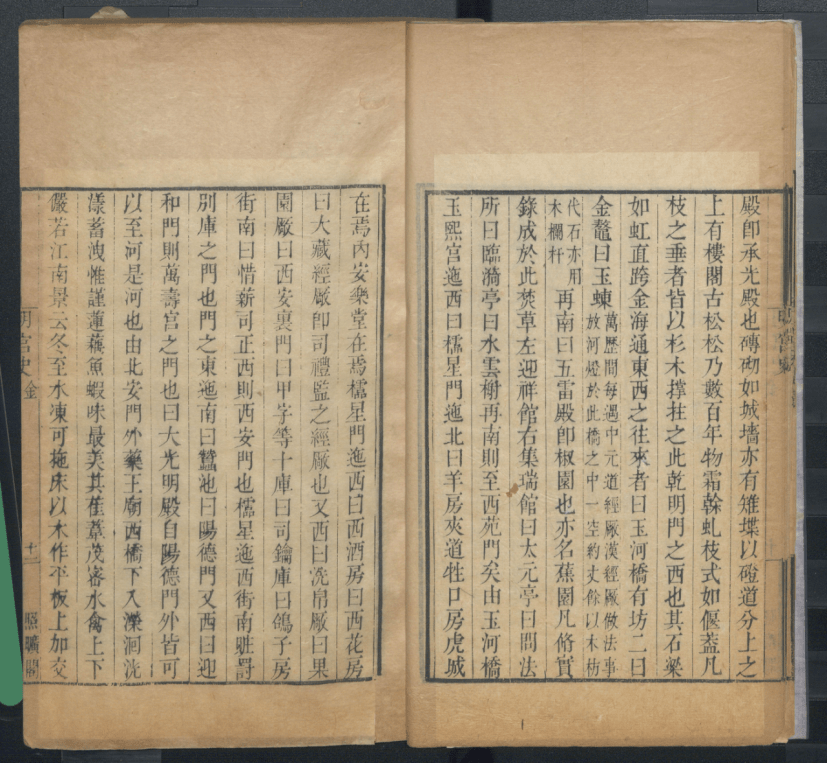 殿卽承光殿也磚砌如城墻亦有雉堞以磴道分上之
上有樓閣古松松乃數百年物霜榦虬枝式如偃葢凡
枝之垂者皆以杉木撑拄之此乾明門之西也其石梁
如虹直跨金海通東西之往來者曰玉河橋有坊二曰
金鼇曰玉蝀萬歷間每遇中元道經廠漢經廠做法事放河燈於此橋之中一空約丈餘以木枋
代石亦用木欄杆再南曰五雷殿卽椒園也亦名蕉園凡修實
錄成於此焚草左迎祥館右集瑞館曰太元亭曰問法
所曰臨漪亭曰水雲榭再南則至西苑門矣由玉河橋
玉熙宮迤西曰櫺星門迤北曰羊房夾道牲口房虎城
在焉內安樂堂在焉櫺星門迤西曰西酒房曰西花房
曰大藏經廠卽司禮監之經廠也又西曰洗帛廠曰果
園廠曰西安裏門曰甲字等十庫曰司鑰庫曰鴿子房
街南曰惜薪司正西則西安門也櫺星迤西街南贓罰
別庫之門也門之東迤南曰蠶池曰陽德門又西曰迎
和門則萬壽宮之門也曰大光明殿自陽德門外皆可
以至河是河也由北安門外藥王廟西橋下入瀠洄洸
漾蓄洩惟謹蓮藕魚蝦味最美其萑葦茂密水禽上下
儼若江南景云冬至水凍可拖床以木作平板上加交
明宮史 金
十二
照曠閣